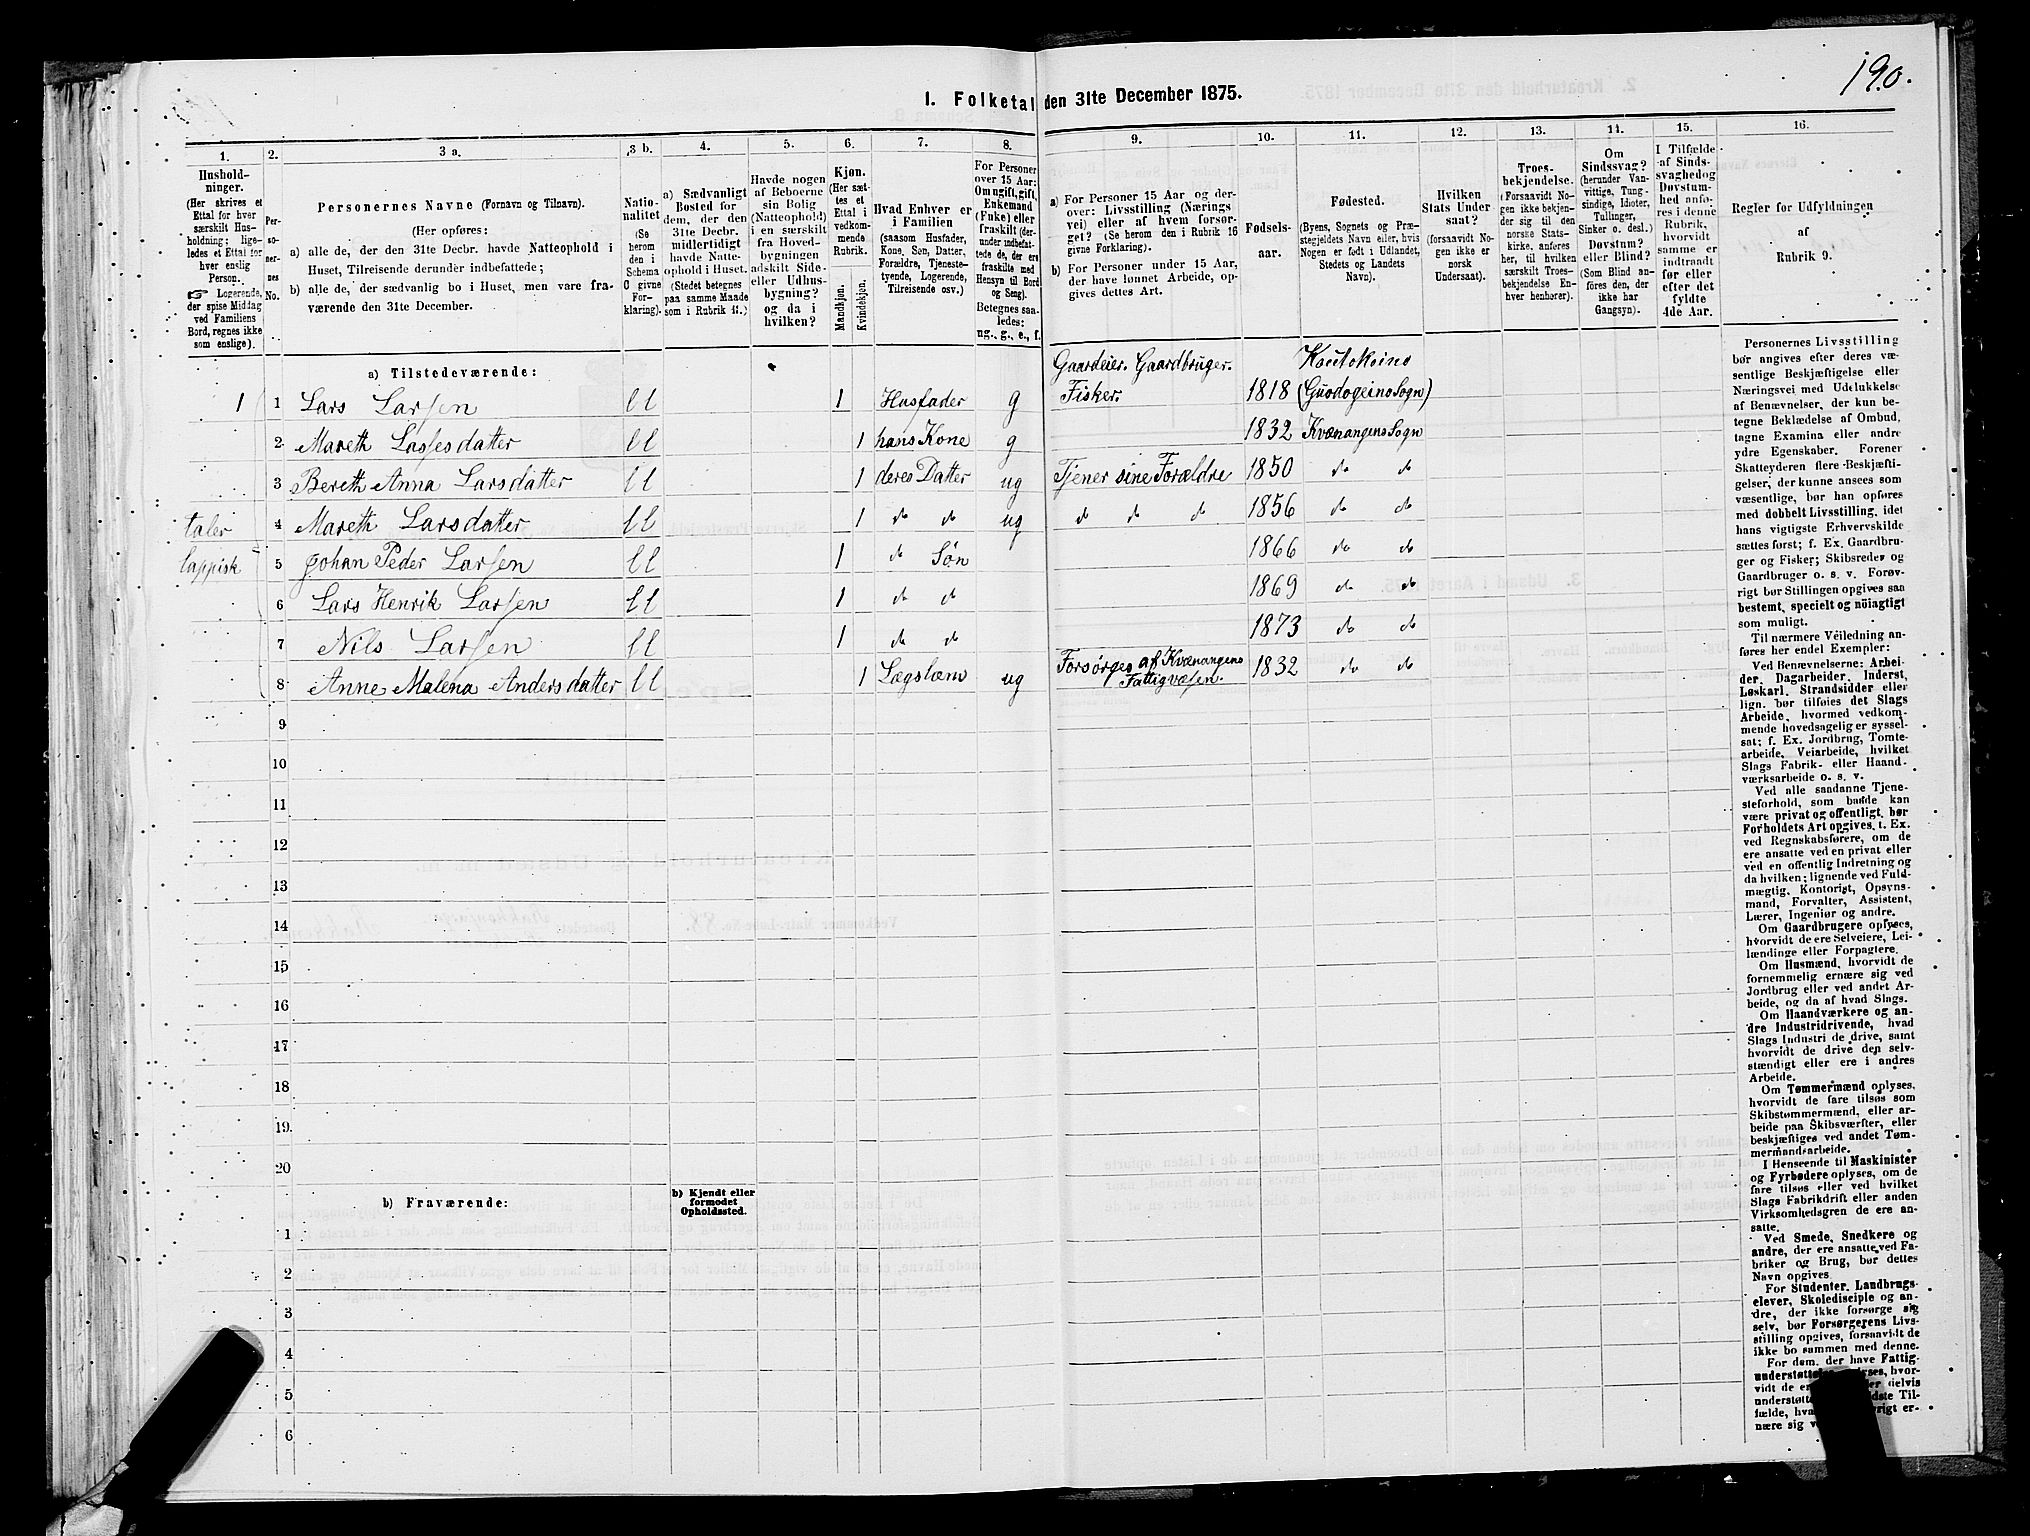 190.
1. Folketal den 31te December 1875.
1. 2. 3 a. 3 b. 4. 5. 6. 7. 8. 9. 10. 11. 12. 13. 14. 15. 16.
Husholdninger.
(Her skrives et
Ettal for hver
særskilt Husholdning;
ligeledes et Ettal for
hver enslig
Person.
☞ Logerende,
der spise Middag
ved Familiens
Bord, regnes ikke
som enslige).
Personernes No.
Personernes Navne (Fornavn og Tilnavn).
(Her opføres:
a) alle de, der den 31te Decbr. havde Natteophold i
Huset, Tilreisende derunder indbefattede;
b) alle de, der sædvanlig bo i Huset, men vare fraværende
den 31te December.
Nationalitet
(Se
herom
den i
Schema
C givne
Forklaring).
a) Sædvanligt
Bosted for
dem, der den
31te Decbr.
midlertidigt
havde Natteophold
i Huset.
(Stedet betegnes
paa samme Maade
som i Rubrik 11.)
Havde nogen
af Beboerne
sin Bolig
(Natteophold)
i en særskilt
fra Hovedbygningen
adskilt Side-
eller Udhusbygning?
og da i
hvilken?
Kjøn.
(Her sættes
et
Ettal i
vedkommende
Rubrik.
Mandkjøn.
Kvindekjøn.
Hvad Enhver er
i Familien
(saasom Husfader,
Kone, Søn, Datter,
Forældre, Tjenestetyende,
Logerende,
Tilreisende osv.)
For Personer
over 15 Aar:
Om ugift, gift,
Enkemand
(Enke) eller
fraskilt (derunder
indbefattede
de, der ere
fraskilte med
Hensyn til Bord
og Seng).
Betegnes saaledes:
ug., g., e., f.
a) For Personer 15 Aar og derover:
Livsstilling (Næringsvei)
eller af hvem forsørget?
(Se herom de i Rubrik 16
givne Forklaring).
b) For Personer under 15 Aar,
der have lønnet Arbeide, opgives
dettes Art.
Fødselsaar.
Fødested.
(Byens, Sognets og Præstegjeldets
Navn eller, hvis
Nogen er født i Udlandet,
Stedets og Landets
Navn).
Hvilken
Stats Undersaat?
(forsaavidt Nogen
ikke er
norsk
Undersaat).
Troesbekjendelse.
(Forsaavidt Nogen
ikke bekjender
sig til den
norske Statskirke,
anføres
her, til hvilken
særskilt Troesbekjendelse
Enhver
henhører).
Om
Sindssvag?
(herunder Vanvittige,
Tungsindige,
Idioter,
Tullinger,
Sinker o. desl.)
Døvstum?
eller Blind?
(Som Blind anføres
den, der
ikke har
Gangsyn).
I Tilfælde
af Sindssvaghed
og
Døvstumhed
anføres
i denne
Rubrik,
hvorvidt
samme er
indtraadt
før eller
efter det
fyldte
4de Aar.
Regler for Udfyldningen
af
Rubrik 9.
a) Tilstedeværende:
1 1 Lars Larsen ll 1 Husfader g Gaardeier. Gaardbruger. Fisker. 1818 Koutokeino (Guodogeino Sogn)
2 Mareth Lassesdatter ll 1 hans Kone g 1832 Kvænangens Sogn
3 Bereth Anna Larsdatter ll 1 deres Datter ug Tjener sine Forældre 1850 do do
taler 4 Mareth Larsdatter ll 1 do do ug do do do 1856 do do
lappisk 5 Johan Peder Larsen ll 1 do Søn 1866 do do
6 Lars Henrik Larsen ll 1 do do 1869 do do
7 Nils Larsen ll 1 do do 1873 do do
8 Anne Malena Andersdatter ll 1 Lægslæm ug Forsørges af Kvænangens Fattigvæsen. 1832 do do
9
10
11
12
13
14
15
16
17
18
19
20
b) Fraværende:
b) Kjendt eller
formodet
Opholdssted.
1
2
3
4
5
6
Personernes Livsstilling
bør angives efter deres væsentlige
Beskjæftigelse eller
Næringsvei med Udelukkelse
af Benævnelser, der kun betegne
Beklædelse af Ombud,
tagne Examina eller andre
ydre Egenskaber. Forener
Skatteyderen flere Beskjæftigelser,
der kunne ansees som
væsentlige, bør han opføres
med dobbelt Livsstilling, idet
hans vigtigste Erhvervskilde
sættes først; f. Ex. Gaardbruger
og Fisker; Skibsreder og
Gaardbruger o. s. v. Forøvrigt
bør Stillingen opgives saa
bestemt, specielt og nöiagtigt
som muligt.
Til nærmere Veiledning anføres
her endel Exempler:
Ved Benævnelserne: Arbeider,
Dagarbeider, Inderst,
Løskarl, Strandsidder eller
lign. bør tilføies det Slags
Arbeide, hvormed vedkommende
hovedsagelig er sysselsat;
f. Ex. Jordbrug, Tomtearbeide,
Veiarbeide, hvilket
Slags Fabrik- eller Haandværksarbeide
o. s. v.
Ved alle saadanne Tjenesteforhold,
som baade kan
være privat og offentligt, bør
Forholdets Art opgives, t. Ex.
ved Regnskabsførere, om de
ere ansatte ved en privat eller
ved en offentlig Indretning og
da hvilken; lignende ved Fuldmægtig,
Kontorist, Opsynsmand,
Forvalter, Assistent,
Lærer, Ingeniør og andre.
Om Gaardbrugere oplyses,
hvorvidt de ere Selveiere, Leilændinge
eller Forpagtere.
Om Husmænd, hvorvidt de
fornemmelig ernære sig ved
Jordbrug eller ved andet Arbeide,
og da af hvad Slags.
Om Haandværkere og andre
Industridrivende, hvad
Slags Industri de drive, samt
hvorvidt de drive den selvstændigt
eller ere i andres
Arbeide.
Om Tømmermænd oplyses,
hvorvidt de fare tilsøs som
Skibstømmermænd, eller arbeide
paa Skibsværfter, eller
beskjæftiges ved andet Tømmermandsarbeide.
I Henseende til Maskinister
og Fyrbødere oplyses, om de
fare tilsøs eller ved hvilket
Slags Fabrikdrift eller anden
Virksomhedsgren de ere ansatte.
Ved Smede, Snedkere og
andre, der ere ansatte ved Fabriker
og Brug, bør dettes
Navn opgives.
For Studenter, Landbrugselever,
Skoledisciple og andre,
der ikke forsørge sig
selv, bør Forsørgerens Livsstilling
opgives, forsaavidt de
ikke bo sammen med denne.
For dem, der have Fattigunderstøttelse,